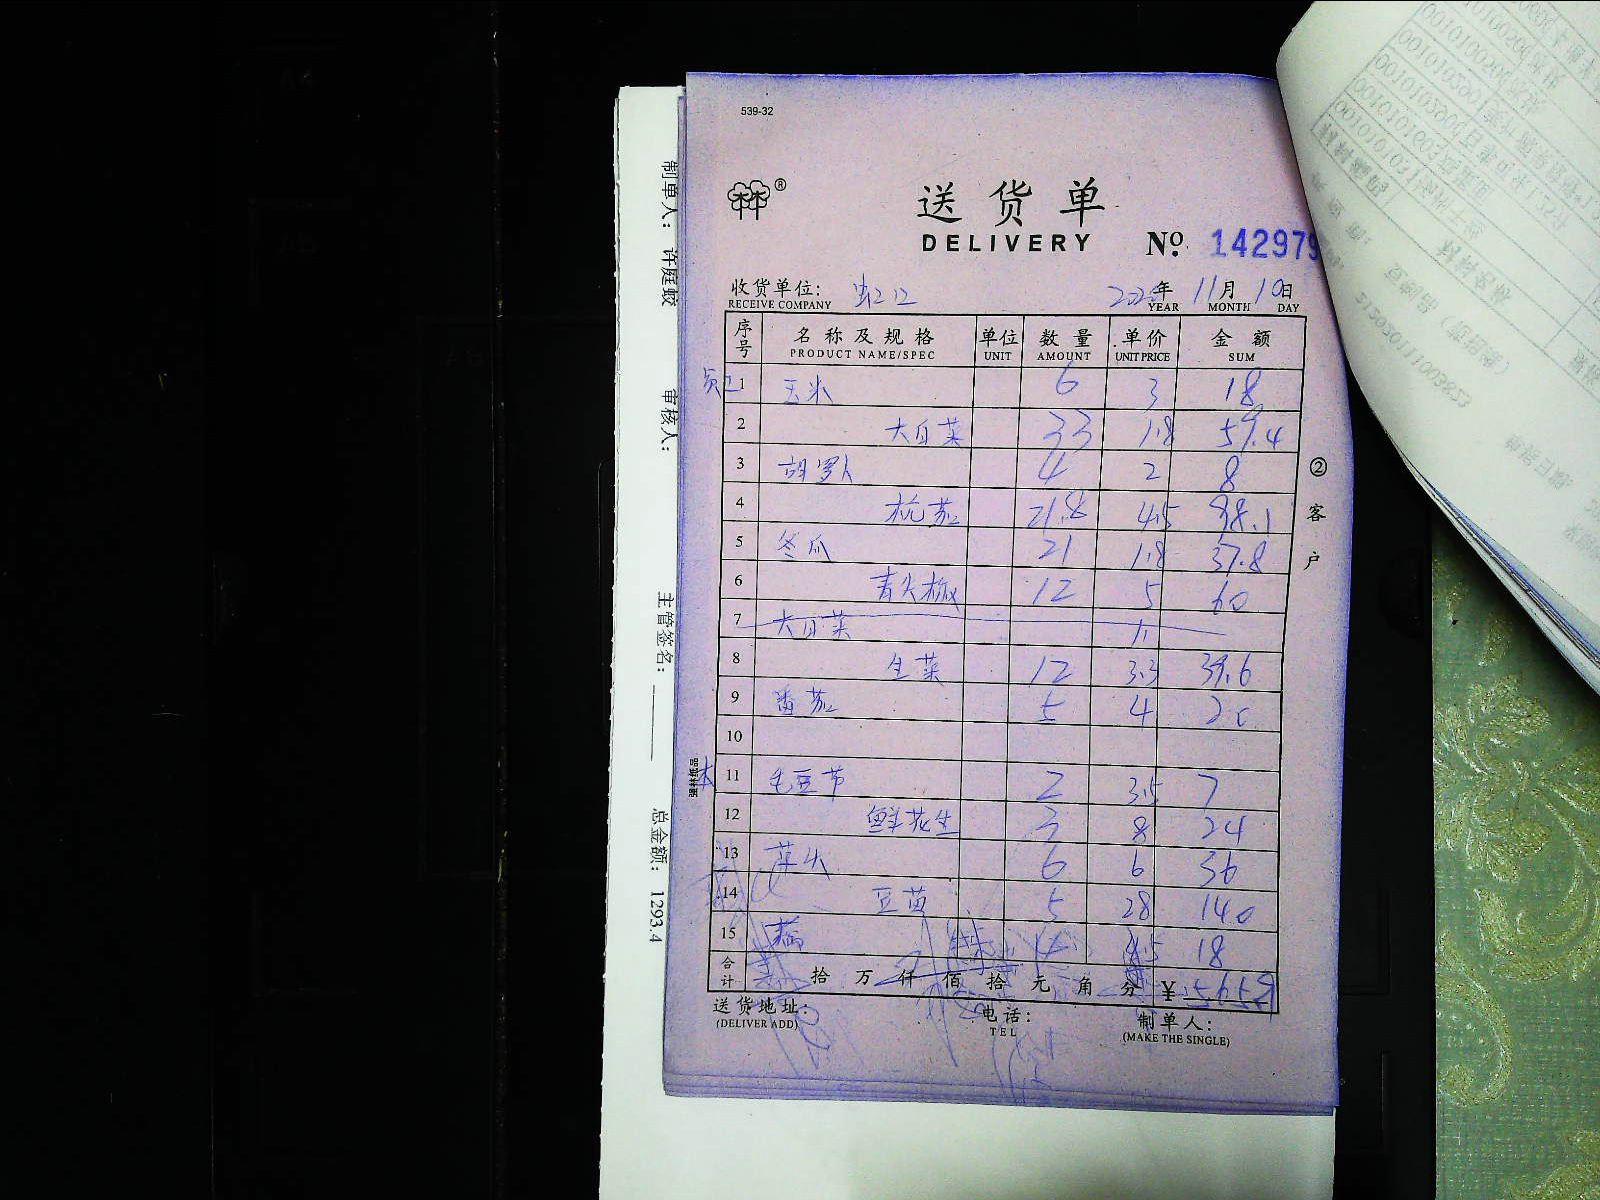 539-32
®
送货单
DELIVERY
No. 142979
收货单位: 虹江 2020年 11月 10日
RECEIVE COMPANY YEAR MONTH DAY
序号 名称及规格 单位 数量 单价 金额
PRODUCT NAME/SPEC UNIT AMOUNT UNIT PRICE SUM
员工 1 玉米 6 3 18
2 大白菜 33 1.8 59.4
3 胡萝卜 4 2 8
4 杭茄 21.8 4.5 98.1
5 冬瓜 21 1.8 37.8
6 青尖椒 12 5 60
7 大白菜
8 生菜 12 3.3 39.6
9 番茄 5 4 20
10
11 毛豆节 2 3.5 7
12 鲜花生 3 8 24
13 6 6 36
14 豆苗 5 28 140
15 4 4.5 18
合计 拾 万 仟 佰 拾 元 角 分 ¥ 565.8
送货地址: 电话: 制单人:
(DELIVER ADD) TEL (MAKE THE SINGLE)
②客户
强林纸品
制单人: 许庭蛟
审核人:
主管签名:
总金额: 1293.4